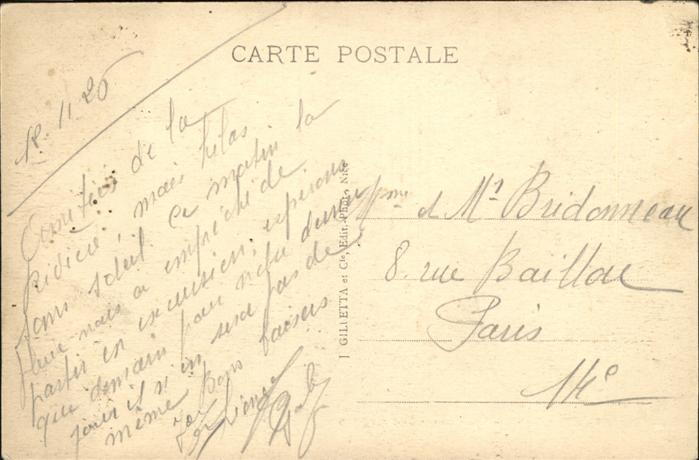 CARTE POSTALE
12.11.26
de la
mais hélas
sans soleil. Ce matin la
nous a empêché de
partir en excursion, espérons
que demain pour notre dernier
jour il n'en sera pas de
même. Bons baisers
J GILLETTA et Cie, Edit. Phot. Nice
Mme et Mr Bridonneau
8. rue Baillou
Paris
14e